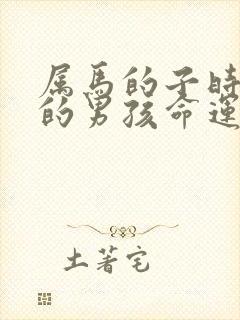 属马的子时
的男孩命運
土著宅